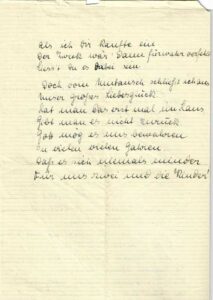 als ich Dir kaufte ein
Der Zweck wär dann fürwahr verfehlt
liesst Du es dabei sein
Doch vom Umtausch schliesst sich aus
Unser grosses Liebesglück
Hat man das erst mal im Haus
Gibt man es nicht zurück
Gott mög es uns bewahren
In vielen vielen Jahren
Dass es sich niemals minder
Für uns zwei und die Kinder!